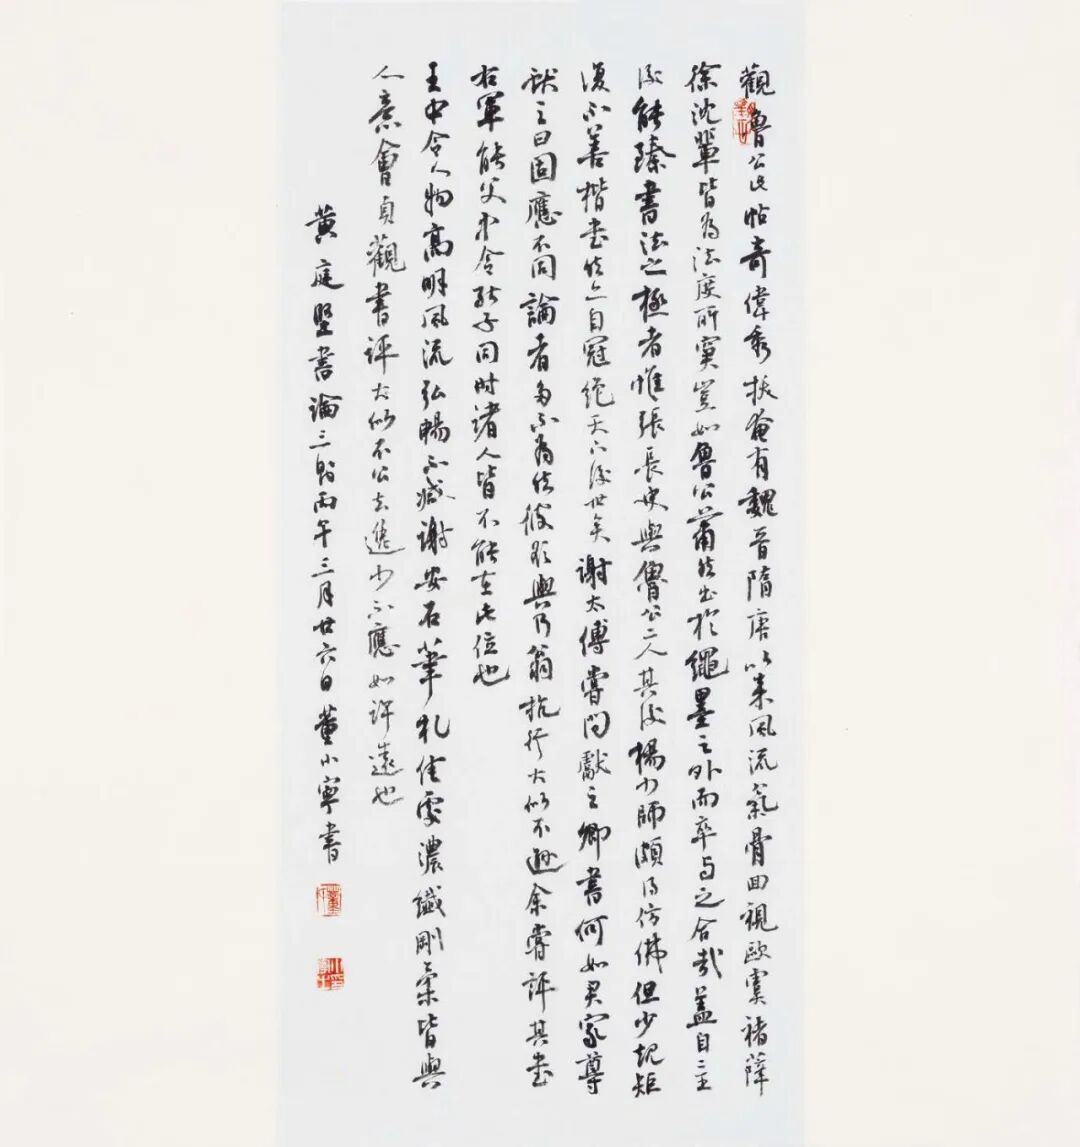 觀魯公此帖奇偉秀拔奄有魏晉隋唐以來風流氣骨回視歐虞褚薛
徐沈輩皆為法度所窘豈如魯公蕭然出於繩墨之外而卒与之合哉蓋自二王
後能臻書法之極者惟張長史與魯公二人其後楊少師頗得仿佛但少規矩
復不善楷書然亦自冠绝天下後世矣謝太傅嘗问獻之卿書何如君家尊
獻之曰固應不同論者多不為然彼欲與乃翁抗行大似不遜余嘗評其書
右軍能父中令能子同时諸人皆不能在此位也
王中令人物高明風流弘暢不减謝安石筆札佳處濃纖剛柔皆與
人意會貞觀書評大似不公去逸少不應如许遠也
黄庭坚書論三則丙午三月廿六日董小寧書